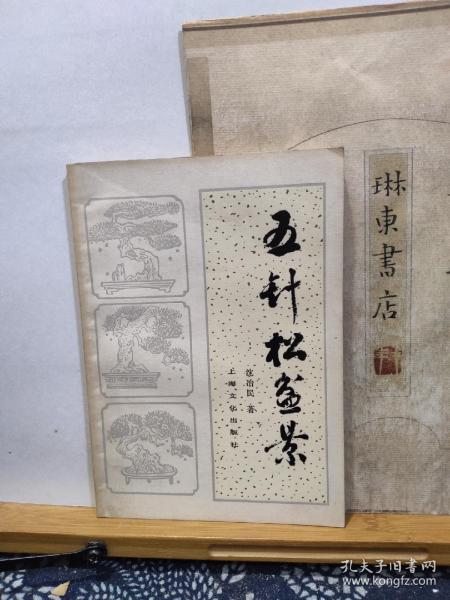 五针松盆景
沈治民 著
上海文化出版社
琳東書店
孔夫子旧书网
www.kongfz.com